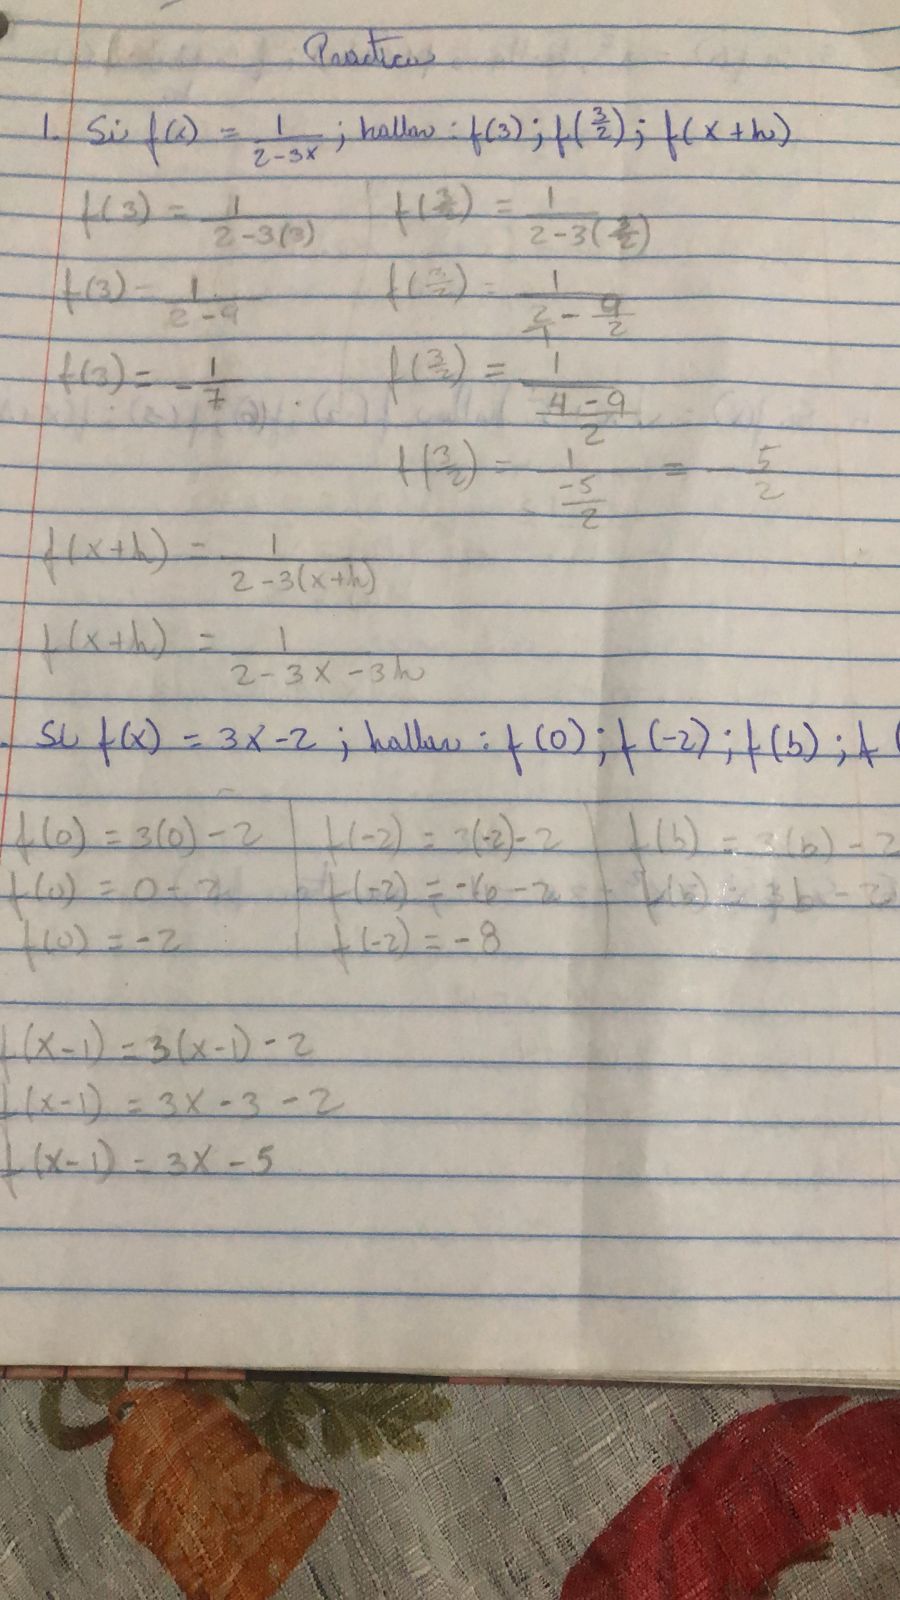 Practica
1. Si f(x) = 1/(2-3x) ; hallar : f(3) ; f(3/2) ; f(x+h)
f(3) = 1/(2-3(3)) f(3/2) = 1/(2-3(3/2))
f(3) = 1/(2-9) f(3/2) = 1/(2/1 - 9/2)
f(3) = -1/7 f(3/2) = 1/((4-9)/2)
f(3/2) = 1/(-5/2) = -5/2
f(x+h) = 1/(2-3(x+h))
f(x+h) = 1/(2-3x-3h)
. Si f(x) = 3x-2 ; hallar : f(0) ; f(-2) ; f(b) ; f(
f(0) = 3(0)-2 f(-2) = 3(-2)-2 f(b) = 3(b)-2
f(0) = 0-2 f(-2) = -6-2 f(b) = 3b-2
f(0) = -2 f(-2) = -8
f(x-1) = 3(x-1)-2
f(x-1) = 3x-3-2
f(x-1) = 3x-5